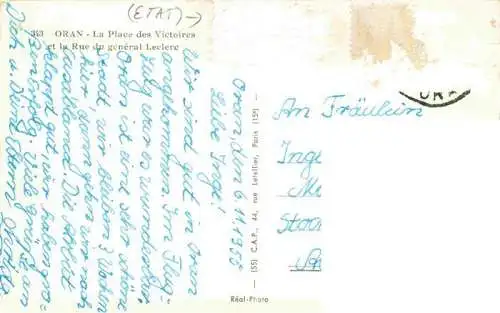 (ETAT)→
383 ORAN - La Place des Victoires
et la Rue du général Leclerc
Oran, den 6.11.1955
Liebe Inge!
Wir sind gut in Oran
angekommen. Im Flug-
zeug war es wunderbar.
Oran ist eine sehr schöne
Stadt, wir bleiben 3 Wochen
hier, dann gehen wir nach
Casablanca. Die Arbeit
klappt gut, wir haben gro-
Viele Grüße an
Dich u. Deine Eltern
[55] C.A.P., 44, rue Letellier, Paris (15e)
Réal-Photo
ORAN
An Fräulein
Inge